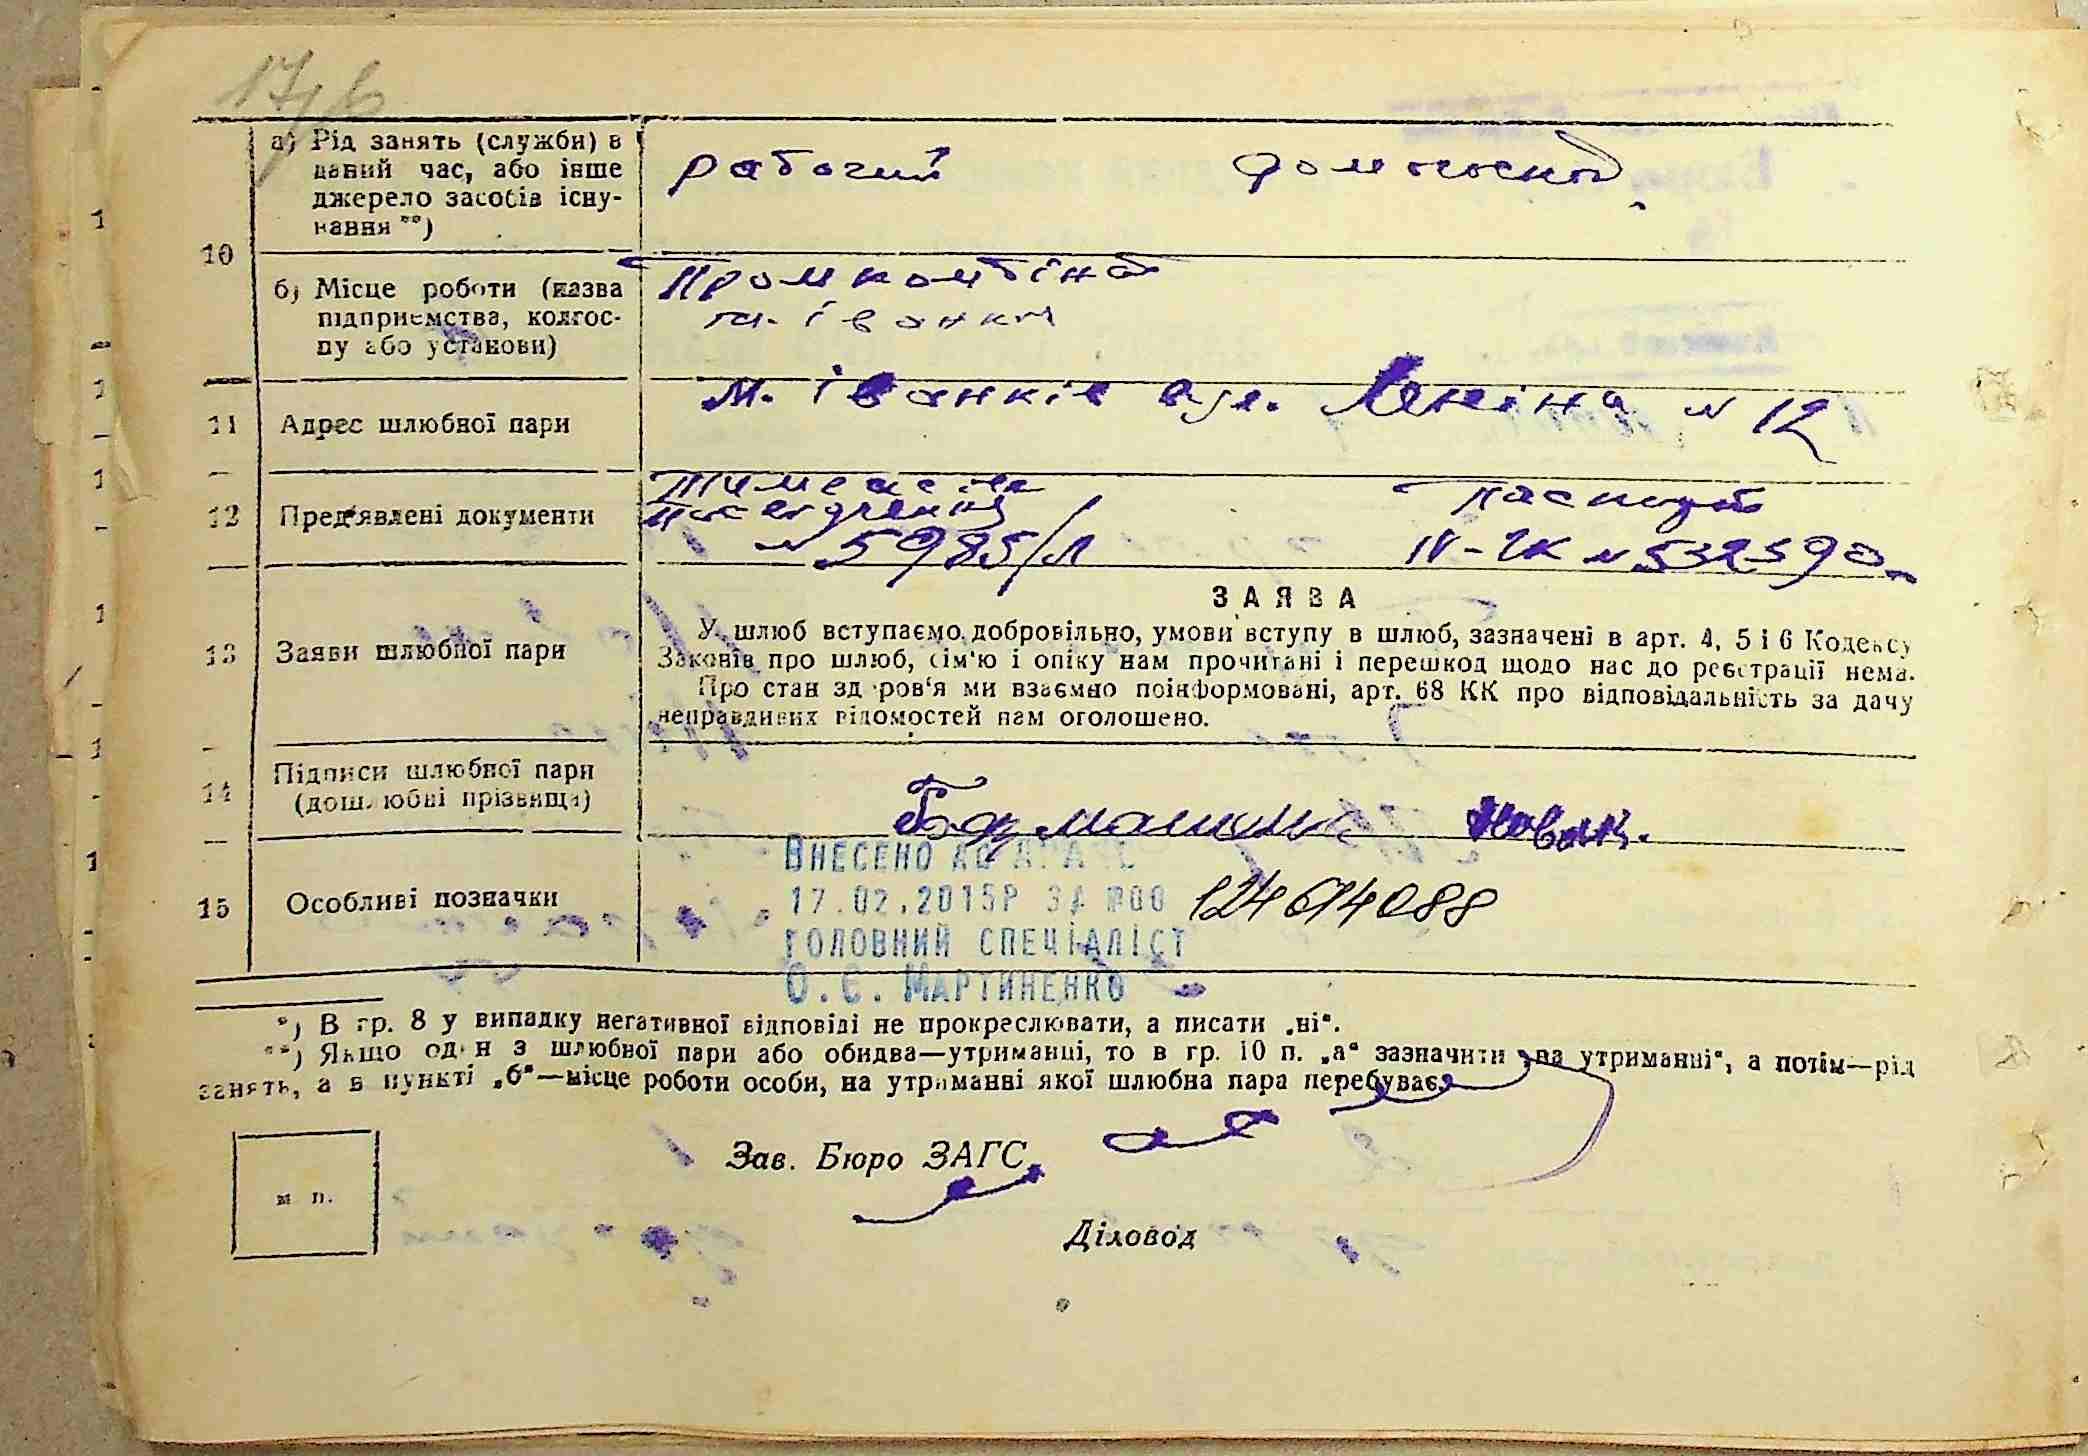 17/6
а) Рід занять (служби) в
даний час, або інше
джерело засобів існу-
вання **)
рабочий
10
б) Місце роботи (назва
підприємства, колгос-
пу або установи)
Промкомбінат
м. Іванків
11 Адрес шлюбної пари
м. Іванків вул. Леніна № 12
12 Пред'явлені документи
№ 5985/Л
паспорт
№ 532590
13 Заяви шлюбної пари
ЗАЯВА
У шлюб вступаємо добровільно, умови вступу в шлюб, зазначені в арт. 4, 5 і 6 Кодексу
Законів про шлюб, сім'ю і опіку нам прочитані і перешкод щодо нас до реєстрації нема.
Про стан здоров'я ми взаємно поінформовані, арт. 68 КК про відповідальність за дачу
неправдивих відомостей нам оголошено.
14 Підписи шлюбної пари
(дошлюбні прізвища)
15 Особливі позначки
Внесено до ДРАЦС
17.02.2015р за №00 124614088
головний спеціаліст
О.Є. Мартиненко
*) В гр. 8 у випадку негативної відповіді не прокреслювати, а писати „ні“.
**) Якщо один з шлюбної пари або обидва—утриманці, то в гр. 10 п. „а“ зазначити „на утриманні“, а потім—рід
занять, а в пункті „б“—місце роботи особи, на утриманні якої шлюбна пара перебуває.
Зав. Бюро ЗАГС
м п.
Діловод